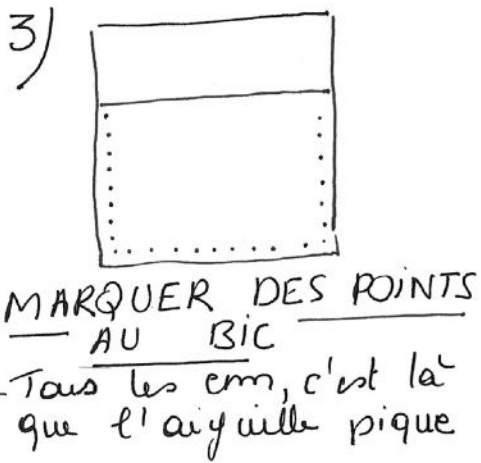 3)
MARQUER DES POINTS
AU BIC
- Tous les cm, c'est là
que l'aiguille pique